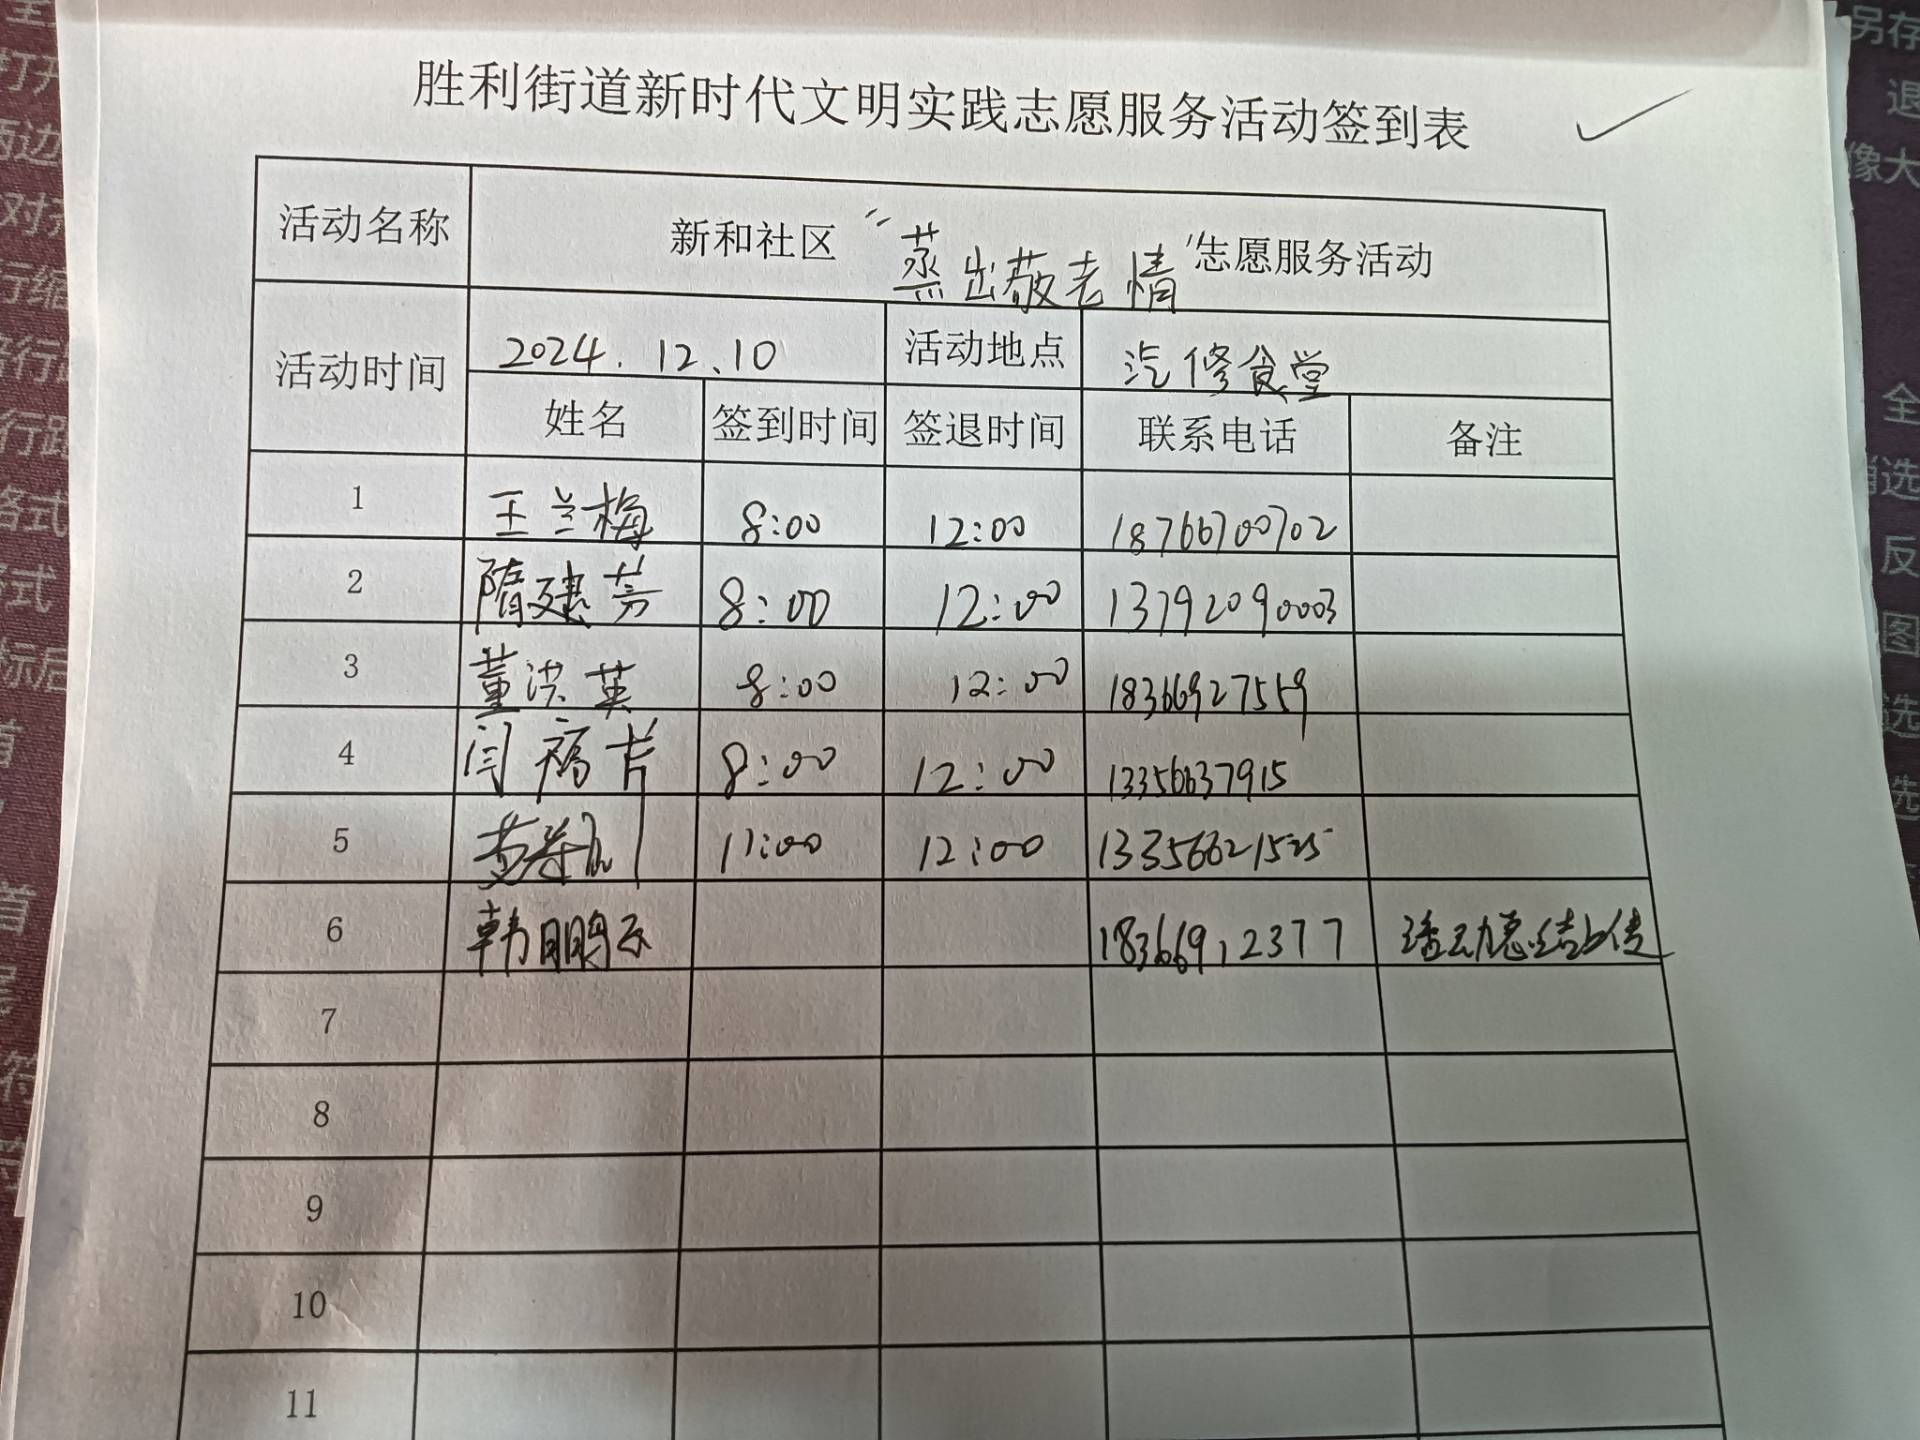 胜利街道新时代文明实践志愿服务活动签到表
活动名称 新和社区“蒸出敬老情”志愿服务活动
活动时间 2024.12.10 活动地点 汽修食堂
姓名 签到时间 签退时间 联系电话 备注
1 王兰梅 8:00 12:00 18766700702
2 隋建芳 8:00 12:00 13792090003
3 董洪英 8:00 12:00 18366927559
4 闫福芹 8:00 12:00 13356637915
5 11:00 12:00 13356621525
6 韩鹏云 18366912377
7
8
9
10
11
另存
退
像大
全
选
反
图
选
选
打开
两边
对齐
行缩
行距
格式
标后
首
首
尾
符